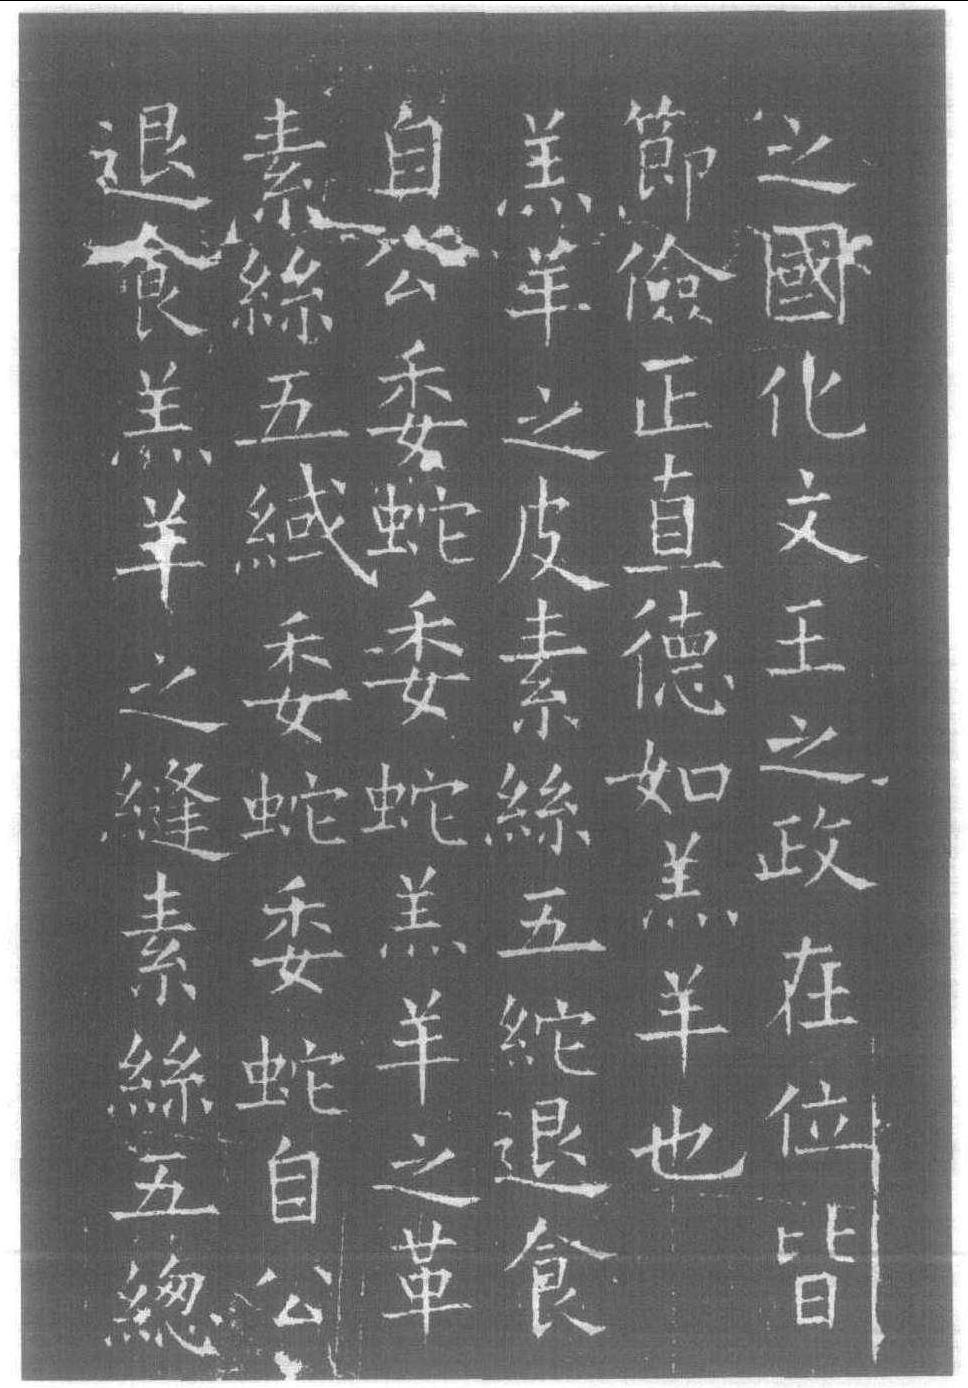 之國化文王之政在位皆
節儉正直德如羔羊也
羔羊之皮素絲五紽退食
自公委蛇委蛇羔羊之革
素絲五緎委蛇委蛇自公
退食羔羊之縫素絲五緫